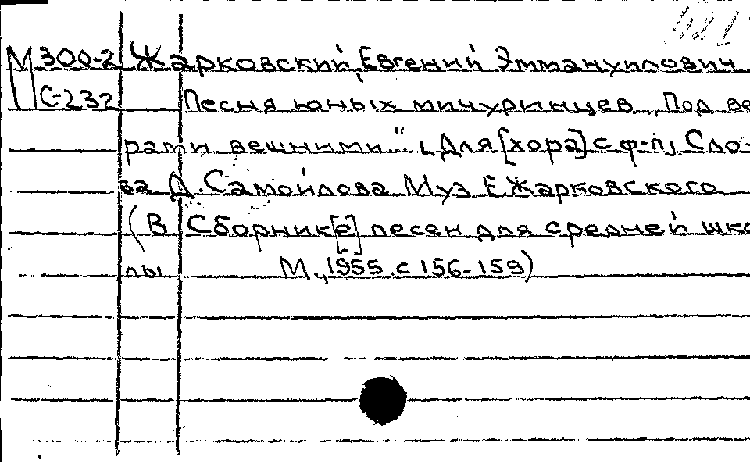 М300-2 Жарковский, Евгений Эммануилович
С-232 Песня юных мичуринцев „Под ве
рами вешними" [Для [хора] с ф-п, Сло-
ва Д. Самойлова Муз Е Жарковского
(В Сборник[е] песен для средней шко
лы М., 1955. с 156-159)